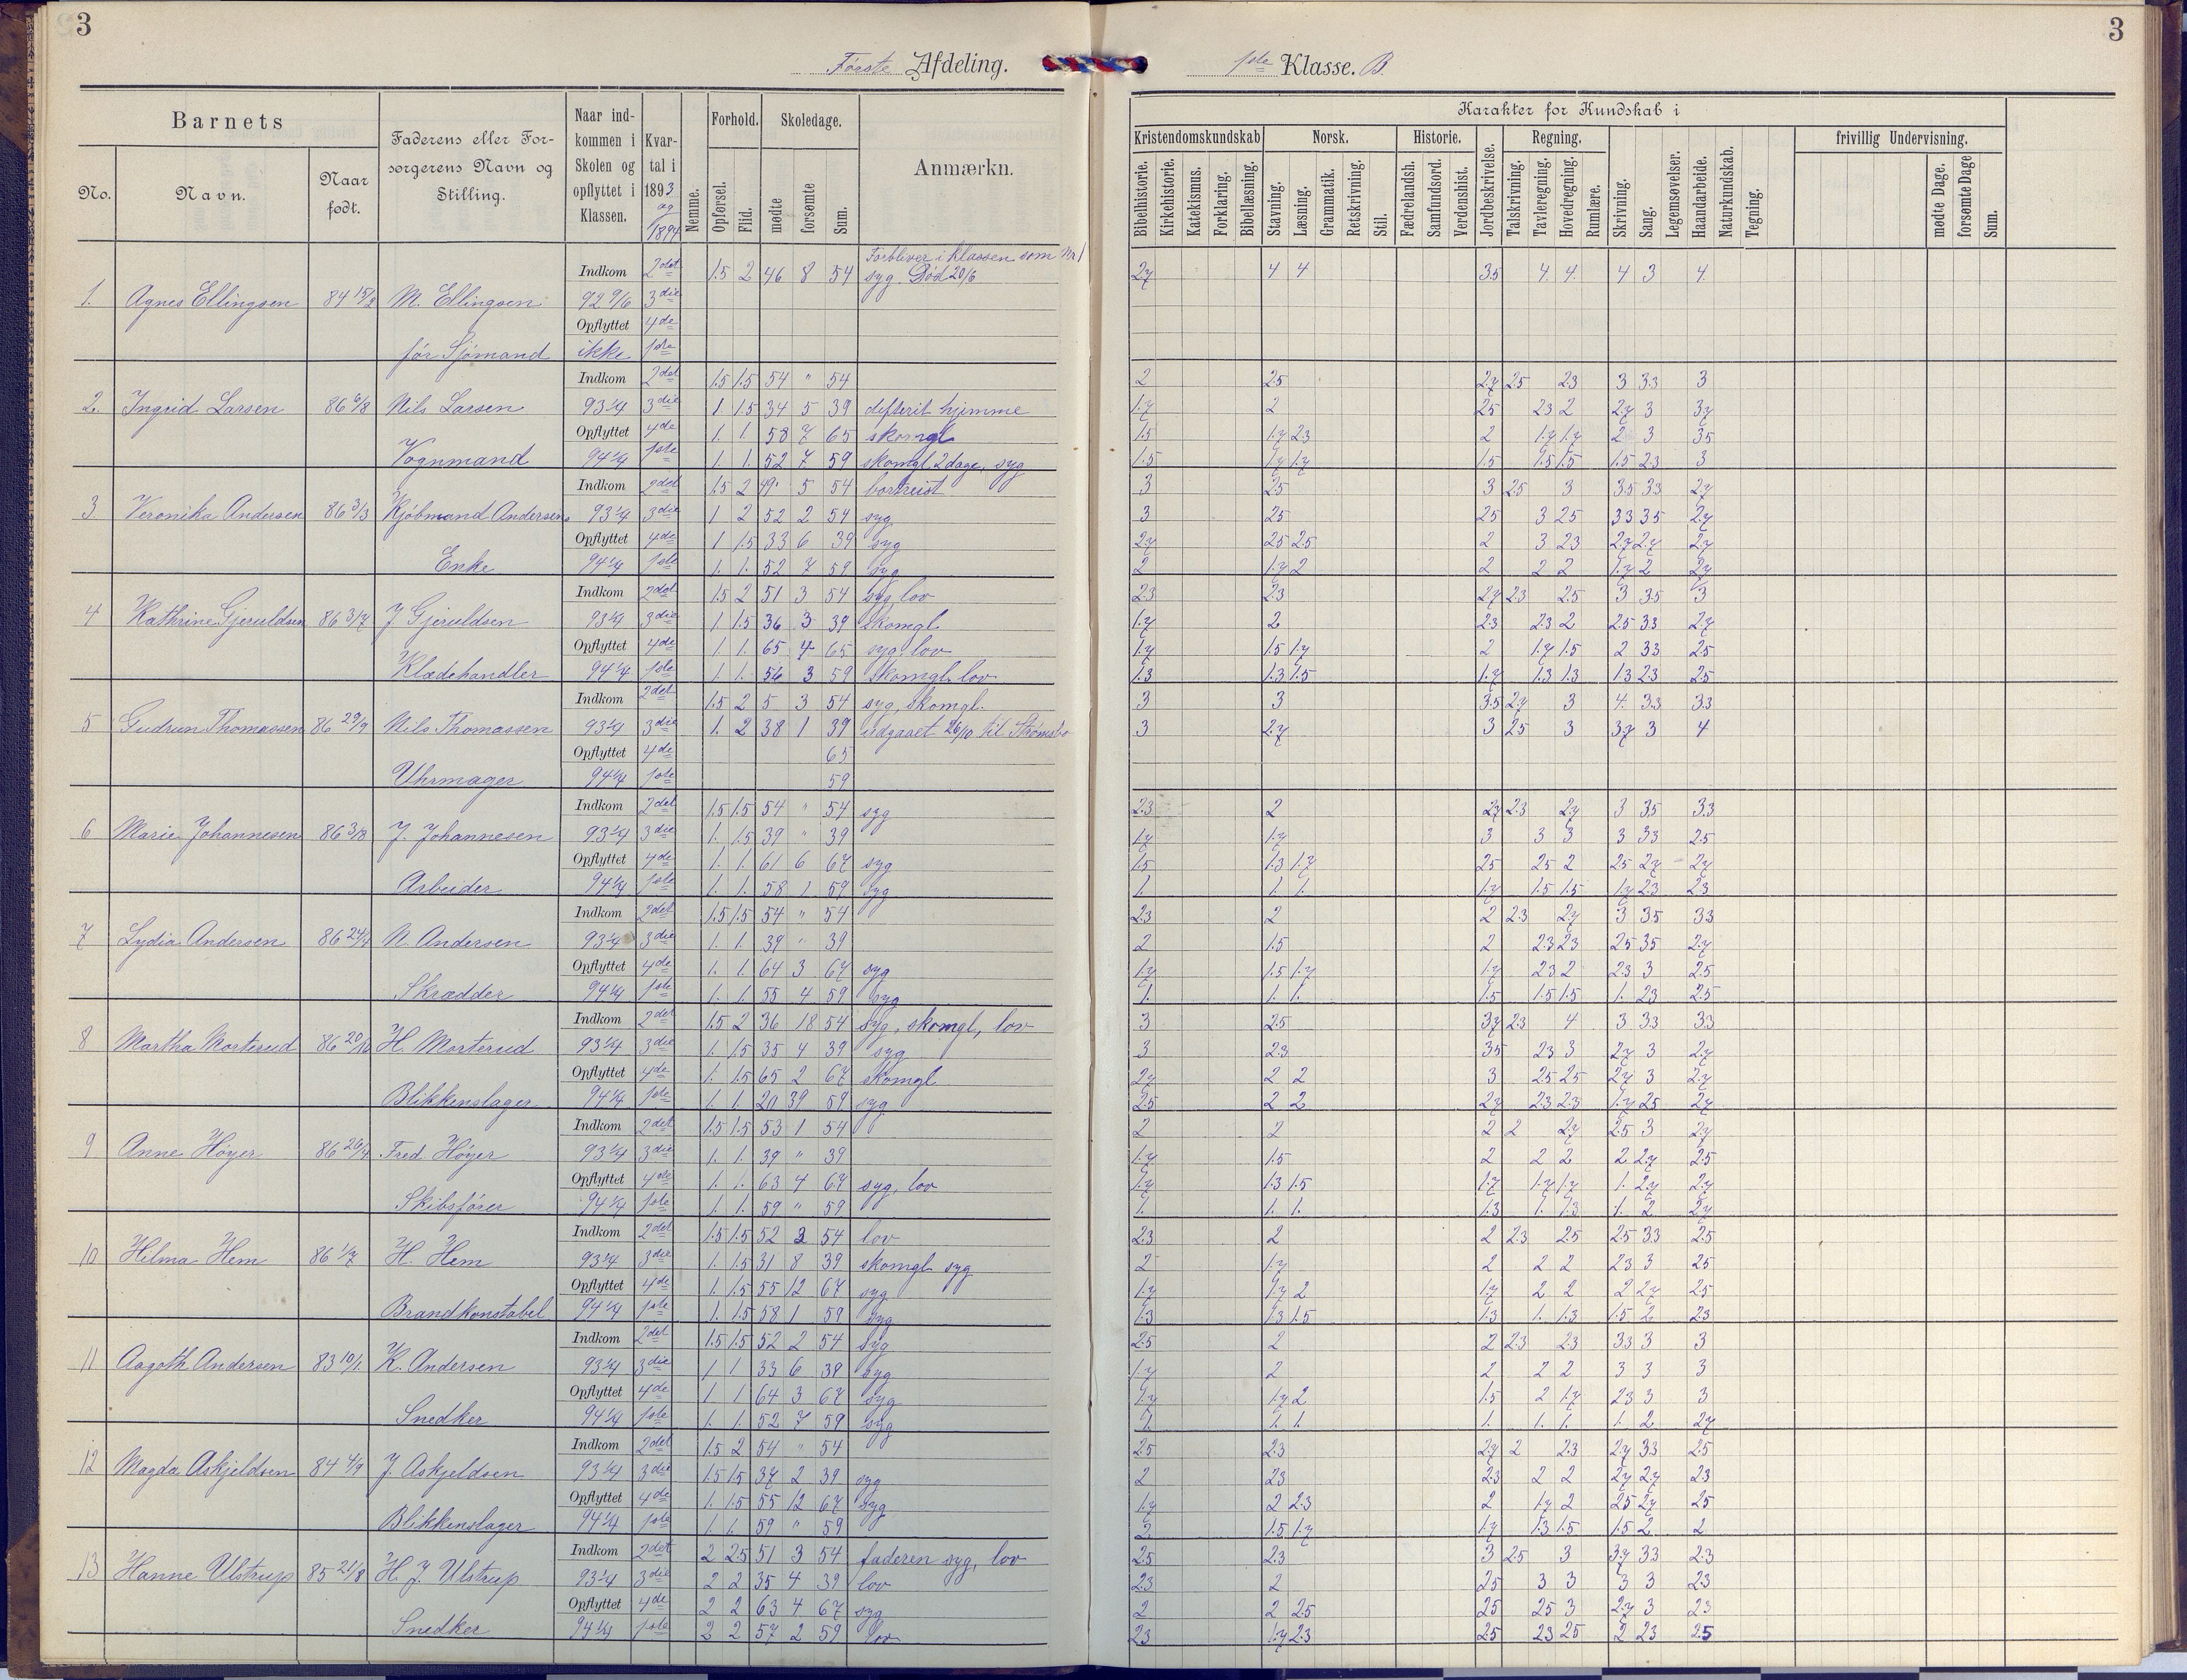 3
Første Afdeling.
1ste Klasse. B.
3
Barnets
No.
Navn.
Naar født.
Faderens eller Forsørgerens Navn og Stilling.
Naar indkommen i Skolen og opflyttet i Klassen.
Kvartal i 1893 og 1894
Nemme.
Forhold.
Opførsel.
Flid.
Skoledage.
mødte
forsømte
Sum.
Anmærkn.
Karakter for Kundskab i
Kristendomskundskab
Bibelhistorie.
Kirkehistorie.
Katekismus.
Forklaring.
Bibellæsning.
Norsk.
Stavning.
Læsning.
Grammatik.
Retskrivning.
Stil.
Historie.
Fædrelandsh.
Samfundsord.
Verdenshist.
Jordbeskrivelse.
Regning.
Talskrivning.
Tavleregning.
Hovedregning.
Rumlære.
Skrivning.
Sang.
Legemsøvelser.
Haandarbeide.
Naturkundskab.
Tegning.
frivillig Undervisning.
mødte Dage.
forsømte Dage
Sum.
Forbliver i klassen som Nr 1
Indkom 2det 1.5 2 46 8 54 syg. Død 20/6 2.7 4 4 3.5 4. 4. 4 3 4.
1. Agnes Ellingsen M. Ellingsen 92 9/6 3die
Opflyttet 4de
før Sjømand ikke 1ste
Indkom 2det 1.5 1.5 54 " 54 2 2.5 2.7 2.5 2.3 3 3.3 3
2. Ingrid Larsen 86 6/8 Nils Larsen 93 1/4 3die 1. 1.5 34 5 39 difterit hjemme 1.7 2 2.5 2.3 2 2.7 3 3.7
Opflyttet 4de 1. 1. 58 7 65 skomgl 1.5 1.7 2.3 2 1.7 1.7 2 3 3.5
Vognmand 94 1/4 1ste 1. 1. 52 7 59 skomgl. 2 dage, syg 1.5 1.7 1.7 1.5 1.5 1.5 1.5 2.3 3
Indkom 2det 1.5 2 49 5 54 bortreist 3 2.5 3 2.5 3 3.5 3.3 2.7
3 Veronika Andersen 86 3/3 Kjøbmand Andersens 93 1/4 3die 1 2 52 2 54 syg 3 2.5 2.5 3 2.5 3.3 3.5 2.7
Opflyttet 4de 1 1.5 33 6 39 syg 2.7 2.5 2.5 2 3 2.3 2.7 2.7 2.7
Enke 94 1/4 1ste 1. 1. 52 7 59 syg 2 1.7 2 2 2 2 1.7 2 2.7
Indkom 2det 1.5 2 51 3 54 syg lov 2.3 2.3 2.7 2.3 2.5 3 3.5 3
4 Kathrine Gjeruldsen 86 3/7 J. Gjeruldsen 93 1/4 3die 1 1.5 36 3 39 skomgl 1.7 2 2.3 2.3 2 2.5 3.3 2.7
Opflyttet 4de 1 1. 65 4 65 syg, lov 1.7 1.5 1.7 2 1.7 1.5 2 3.3 2.5
Klædehandler 94 1/4 1ste 1 1. 56 3 59 skomgl. lov 1.3 1.3 1.5 1.7 1.3 1.3 1.3 2.3 2.5
Indkom 2det 1.5 2 5 3 54 syg, skomgl. 3 3 3.5 2.7 3 4. 3.3 3.3
5 Gudrun Thomassen 86 29/9 Nils Thomassen 93 1/4 3die 1. 2 38 1 39 Udgaaet 26/10 til Strømsbo 3 2.7 3 2.5 3 3.7 3 4
Opflyttet 4de 65
Uhrmager 94 1/4 1ste 59
Indkom 2det 1.5 1.5 54 " 54 syg 2.3 2 2.7 2.3 2.7 3 3.5 3.3
6 Marie Johannesen 86 3/8 J. Johannesen 93 1/4 3die 1. 1.5 39 " 39 1.7 1.7 3 3 3 3 3.3 2.5
Opflyttet 4de 1. 1. 61 6 67 syg 1.5 1.3 1.7 2.5 2.5 2 2.5 2.7 2.7
Arbeider 94 1/4 1ste 1. 1. 58 1 59 syg 1. 1. 1. 1.7 1.5 1.5 1.7 2.3 2.3
Indkom 2det 1.5 1.5 54 " 54 2.3 2 2 2.3 2.7 3 3.5 3.3
7 Lydia Andersen N. Andersen 93 1/4 3die 1. 1. 39 " 39 2 1.5 2 2.3 2.3 2.5 3.5 2.7
Opflyttet 4de 1. 1. 64 3 67 syg 1.7 1.5 1.7 1.7 2.3 2 2.3 3 2.5
Skrædder 94 1/4 1ste 1. 1. 55 4 59 syg 1. 1. 1. 1.5 1.5 1.5 1. 2.3 2.5
Indkom 2det 1.5 2 36 18 54 syg, skomgl, lov 3 2.5 3.7 2.3 4 3 3.3 3.3
8 Martha Morterud 86 20/10 H. Morterud 93 1/4 3die 1. 1.5 35 4 39 syg 3 2.3 3.5 2.3 3 2.7 3 2.7
Opflyttet 4de 1. 1.5 65 2 67 skomgl 2.7 2 2 3 2.5 2.5 2.7 3 2.7
Blikkenslager 94 1/4 1ste 1. 1. 20 39 59 syg 2.5 2 2 2.7 2.3 2.3 1.7 2.5 2.7
Indkom 2det 1.5 1.5 53 1 54 2 2 2 2 2.7 2.5 3 2.7
9 Anne Høyer 86 26/4 Fred. Høyer 93 1/4 3die 1. 1. 39 " 39 1.7 1.5 2 2 2 2 2.7 2.5
Opflyttet 4de 1. 1. 63 4 67 syg, lov 1.7 1.3 1.5 1.7 1.7 1.7 1. 2.7 2.7
Skibsfører 94 1/4 1ste 1. 1. 59 " 59 1. 1. 1. 1.3 1. 1.3 1. 2 2.7
Indkom 2det 1.5 1.5 52 2 54 lov 2.3 2 2 2.3 2.5 2.5 3.3 2.5
10 Hilma Hem 86 1/7 H. Hem 93 1/4 3die 1. 1.5 31 8 39 skomgl syg 2 1.7 2 2 2 2.3 3 2.5
Opflyttet 4de 1. 1.5 55 12 67 syg 1.7 1.7 2 1.7 2 2 2 2.7 2.5
Brandkonstabel 94 1/4 1ste 1. 1.5 58 1 59 syg 1.3 1.3 1.5 1.3 1. 1.3 1.5 2 2.3
Indkom 2det 1.5 1.5 52 2 54 syg 2.5 2 2 2.3 2.3 3.3 3 3
11 Aagoth Andersen 83 10/1 K. Andersen 93 1/4 3die 1 1 33 6 39 syg 1.7 2 2 2 2 3 3 3
Opflyttet 4de 1 1 64 3 67 syg 1.7 1.7 2 1.5 2 1.7 2.3 3 3
Snedker 94 1/4 1ste 1. 1. 52 7 59 syg 1. 1. 1. 1. 1. 1. 1. 2 2.7
Indkom 2det 1.5 2 54 " 54 2.5 2.3 2.7 2 2.3 2.7 3.3 2.5
12 Magda Askjeldsen 84 4/9 J. Askjeldsen 93 1/4 3die 1.5 1.5 37 2 39 syg 2 2.3 2.3 2 2 2.7 2.7 2.3
Opflyttet 4de 1. 1.5 55 12 67 syg 1.7 2 2.3 2 1.7 2 2.5 2.7 2.5
Blikkenslager 94 1/4 1ste 1. 1. 59 " 59 2. 1.5 1.7 1.7 1.3 1.5 1.5 2 2
Indkom 2det 2 2.5 51 3 54 faderen syg, lov 2.5 2.3 3 2.5 3 3.7 3.3 2.3
13 Hanne Ulstrup 85 21/8 H. J. Ulstrup 93 1/4 3die 2 2 35 4 39 lov 2.3 2 2.5 3 3 3 3 2.3
Opflyttet 4de 2 2 63 4 67 syg 2 2 2.5 2.5 2.5 3 2.7 3 2.3
Snedker 94 1/4 1ste 2 2 57 2 59 lov 2.3 1.7 2.3 2.5 2.3 2.5 2 2.3 2.5